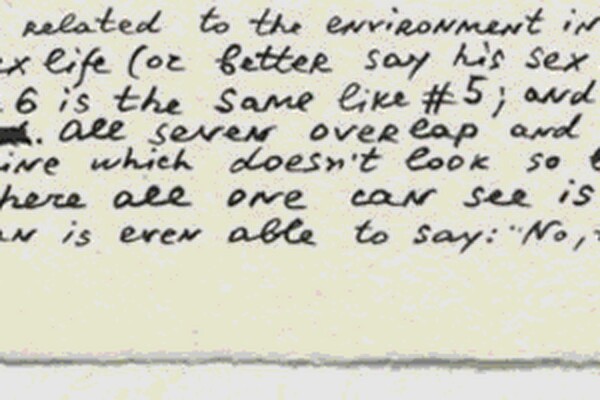 related to the environment in
ex life (or better say his sex
6 is the same like #5; and
. all seven overlap and
ine which doesn't look so
here all one can see is
an is even able to say: "No,